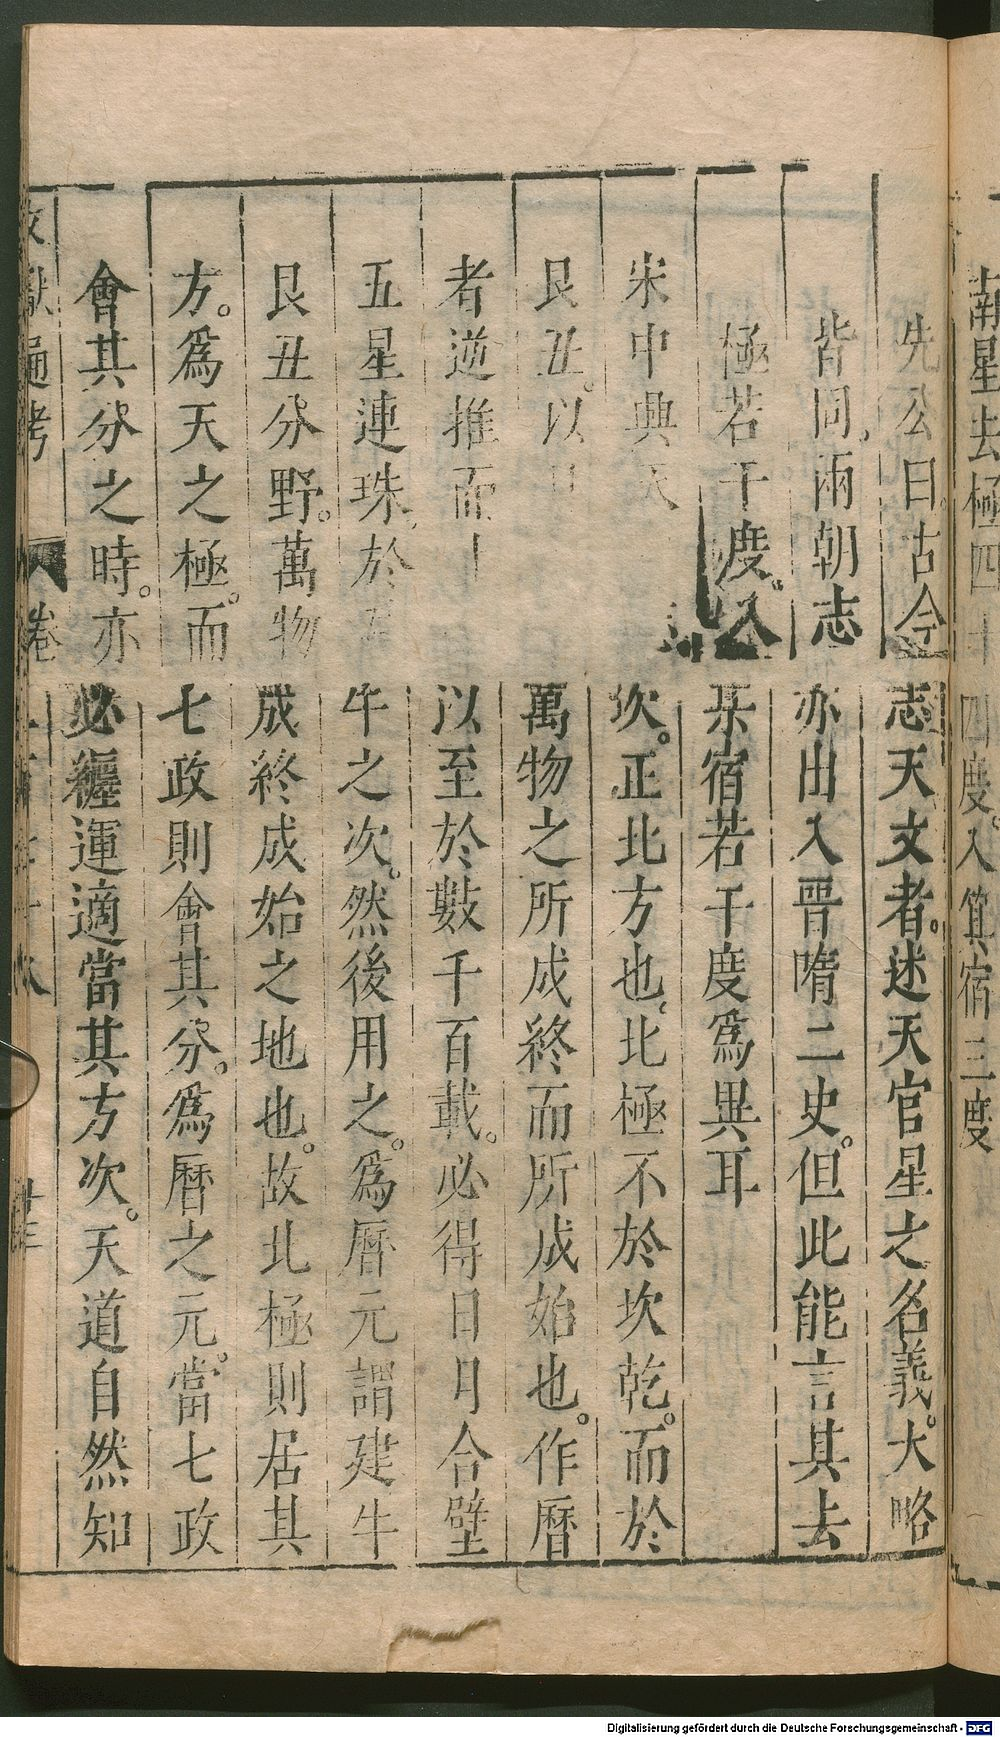 南星去極四十四度。入箕宿三度
先公曰。古今志天文者。述天官星之名義。大略
皆同。兩朝志亦出入晉隋二史。但此能言其去
極若干度。入某宿若干度爲異耳
宋中興天 次。正北方也。北極不於坎乾。而於
艮丑。以 萬物之所成終而所成始也。作曆
者逆推而 以至於數千百載。必得日月合璧
五星連珠。於 牛之次。然後用之。爲曆元謂建牛
艮丑分野。萬物成終成始之地也。故北極則居其
方。爲天之極。而七政則會其分。爲曆之元。當七政
會其分之時。亦必纏運適當其方次。天道自然知
文獻通考 卷
Digitalisierung gefördert durch die Deutsche Forschungsgemeinschaft - DFG